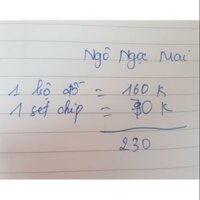 Ngô Ngọc Mai
1 hũ = 160 K
1 set chip = 70 K
230